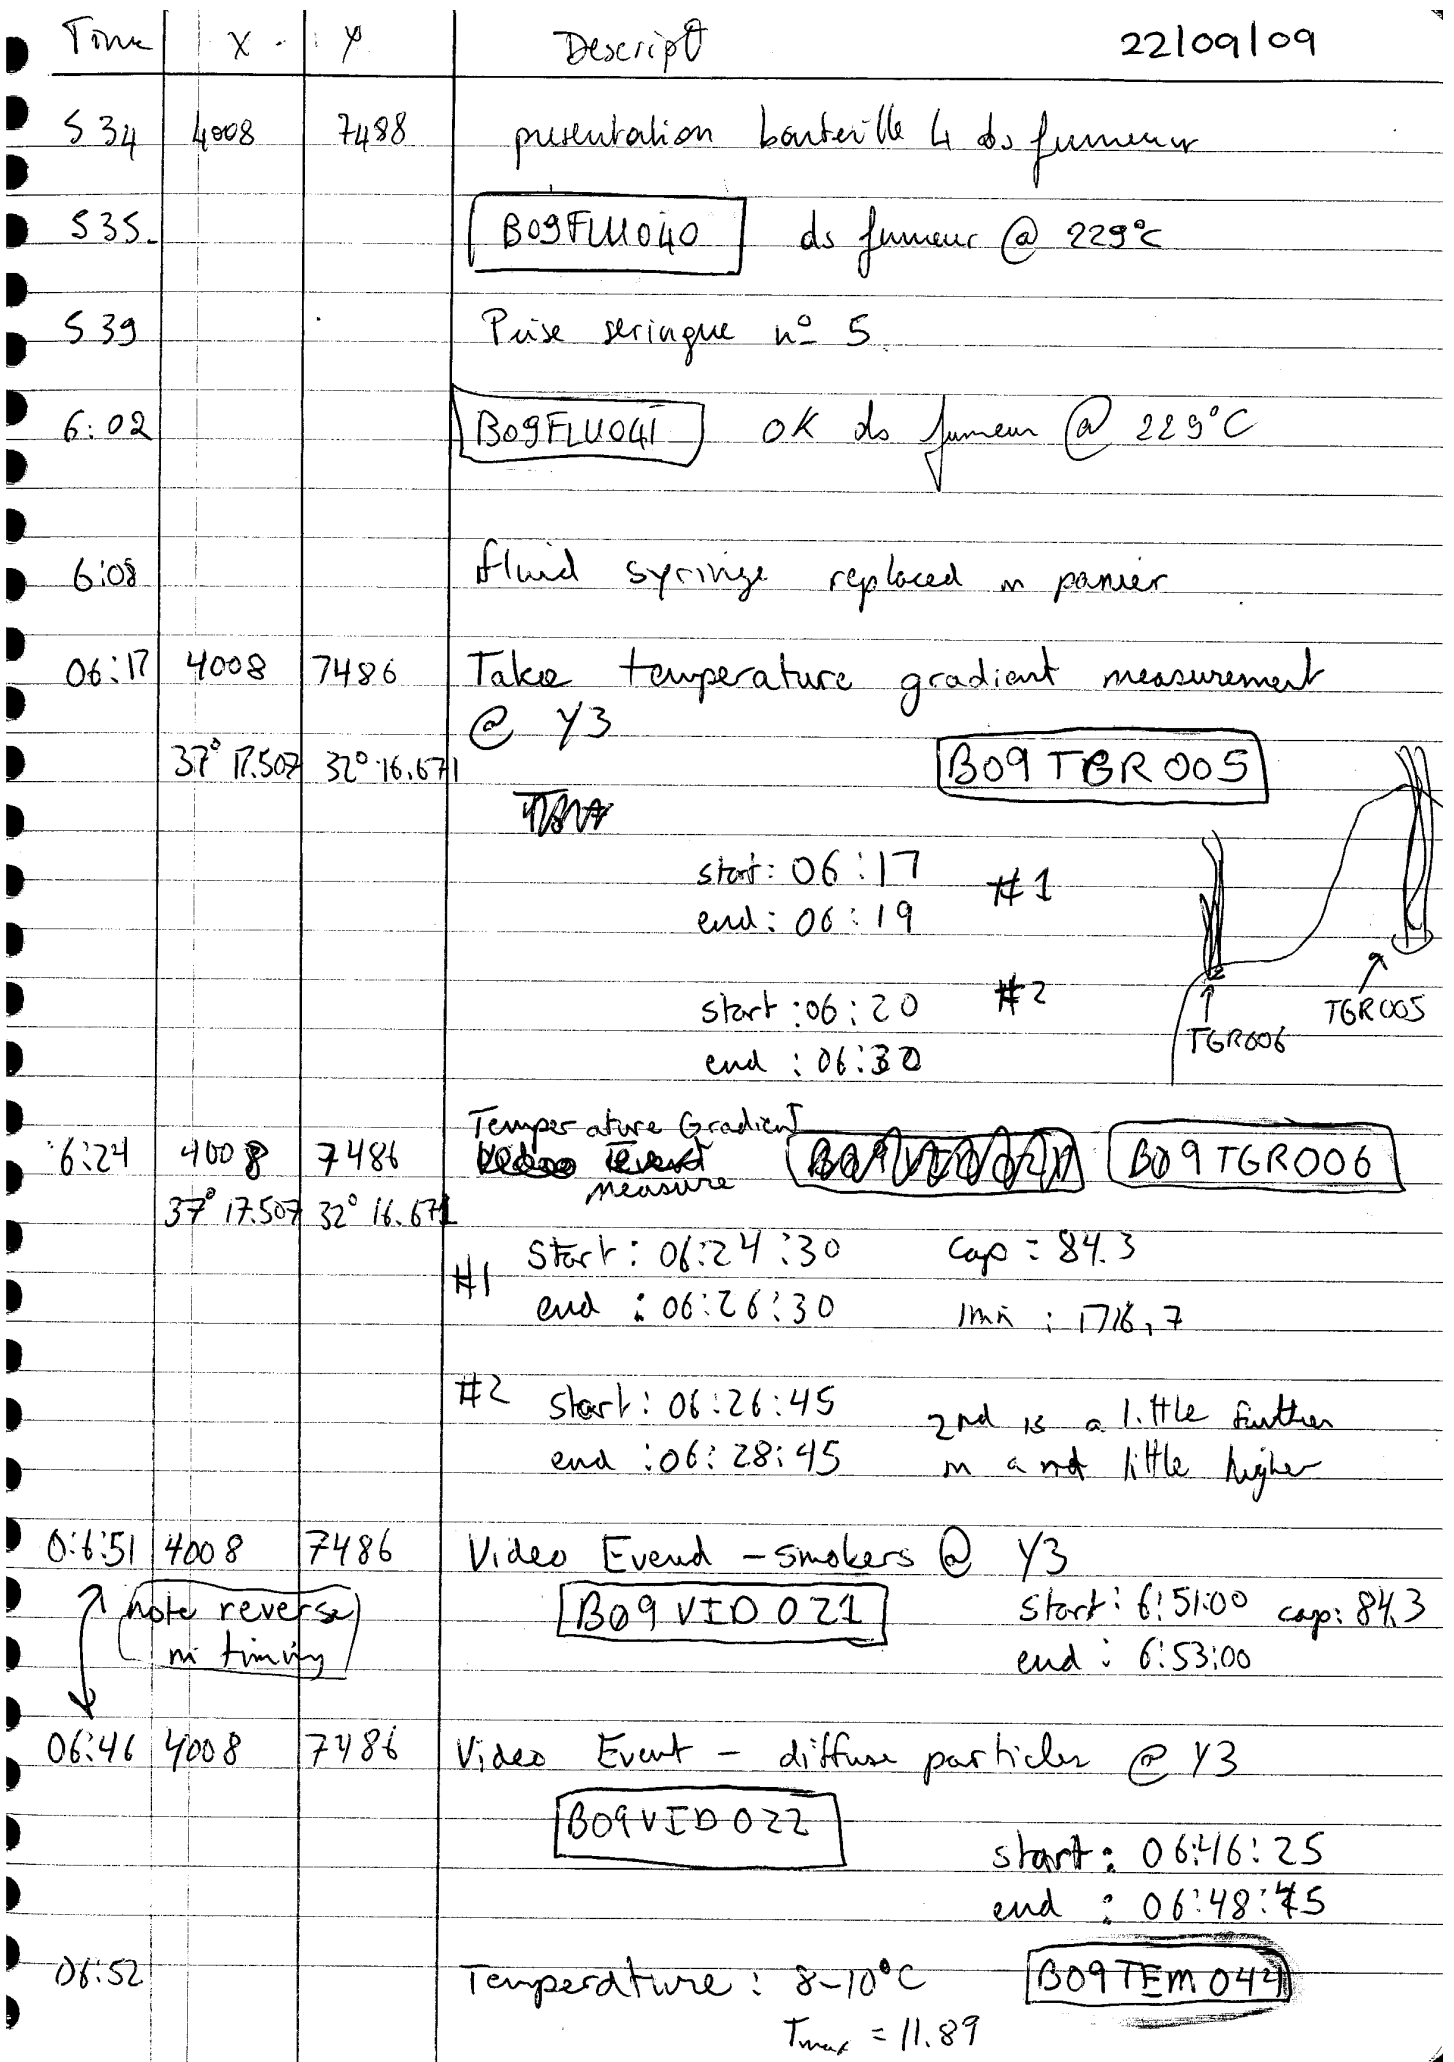 Time X Y Descript 22/09/09
534 4008 7488 presentation bouteille 4 ds fumeur
535. B09FLU040 ds fumeur @ 229°C
539 Prise seringue n° 5
6:02 B09FLU041 OK ds fumeur @ 229°C
6:08 fluid syringe replaced in panier
06:17 4008 7486 Take temperature gradient measurement
@ Y3
37° 17.507 32° 16.671 B09TGR005
start: 06:17 #1
end: 06:19
start: 06:20 #2
end: 06:30
TGR005
TGR006
Temperature Gradient
6:24 4008 7486 measure B09TGR006
37° 17.507 32° 16.671
#1 Start: 06:24:30 Cap = 84.3
end: 06:26:30 1mn : 1716,7
#2 start: 06:26:45 2nd is a little further
end: 06:28:45 in a little higher
0:6:51 4008 7486 Video Event - smokers @ Y3
note reverse B09VID021 start: 6:51:00 cap: 84.3
in timing end: 6:53:00
06:46 4008 7486 Video Event - diffuse particles @ Y3
B09VID022
start: 06:46:25
end: 06:48:45
06:52 Temperature: 8-10°C B09TEM044
Tmax = 11.89